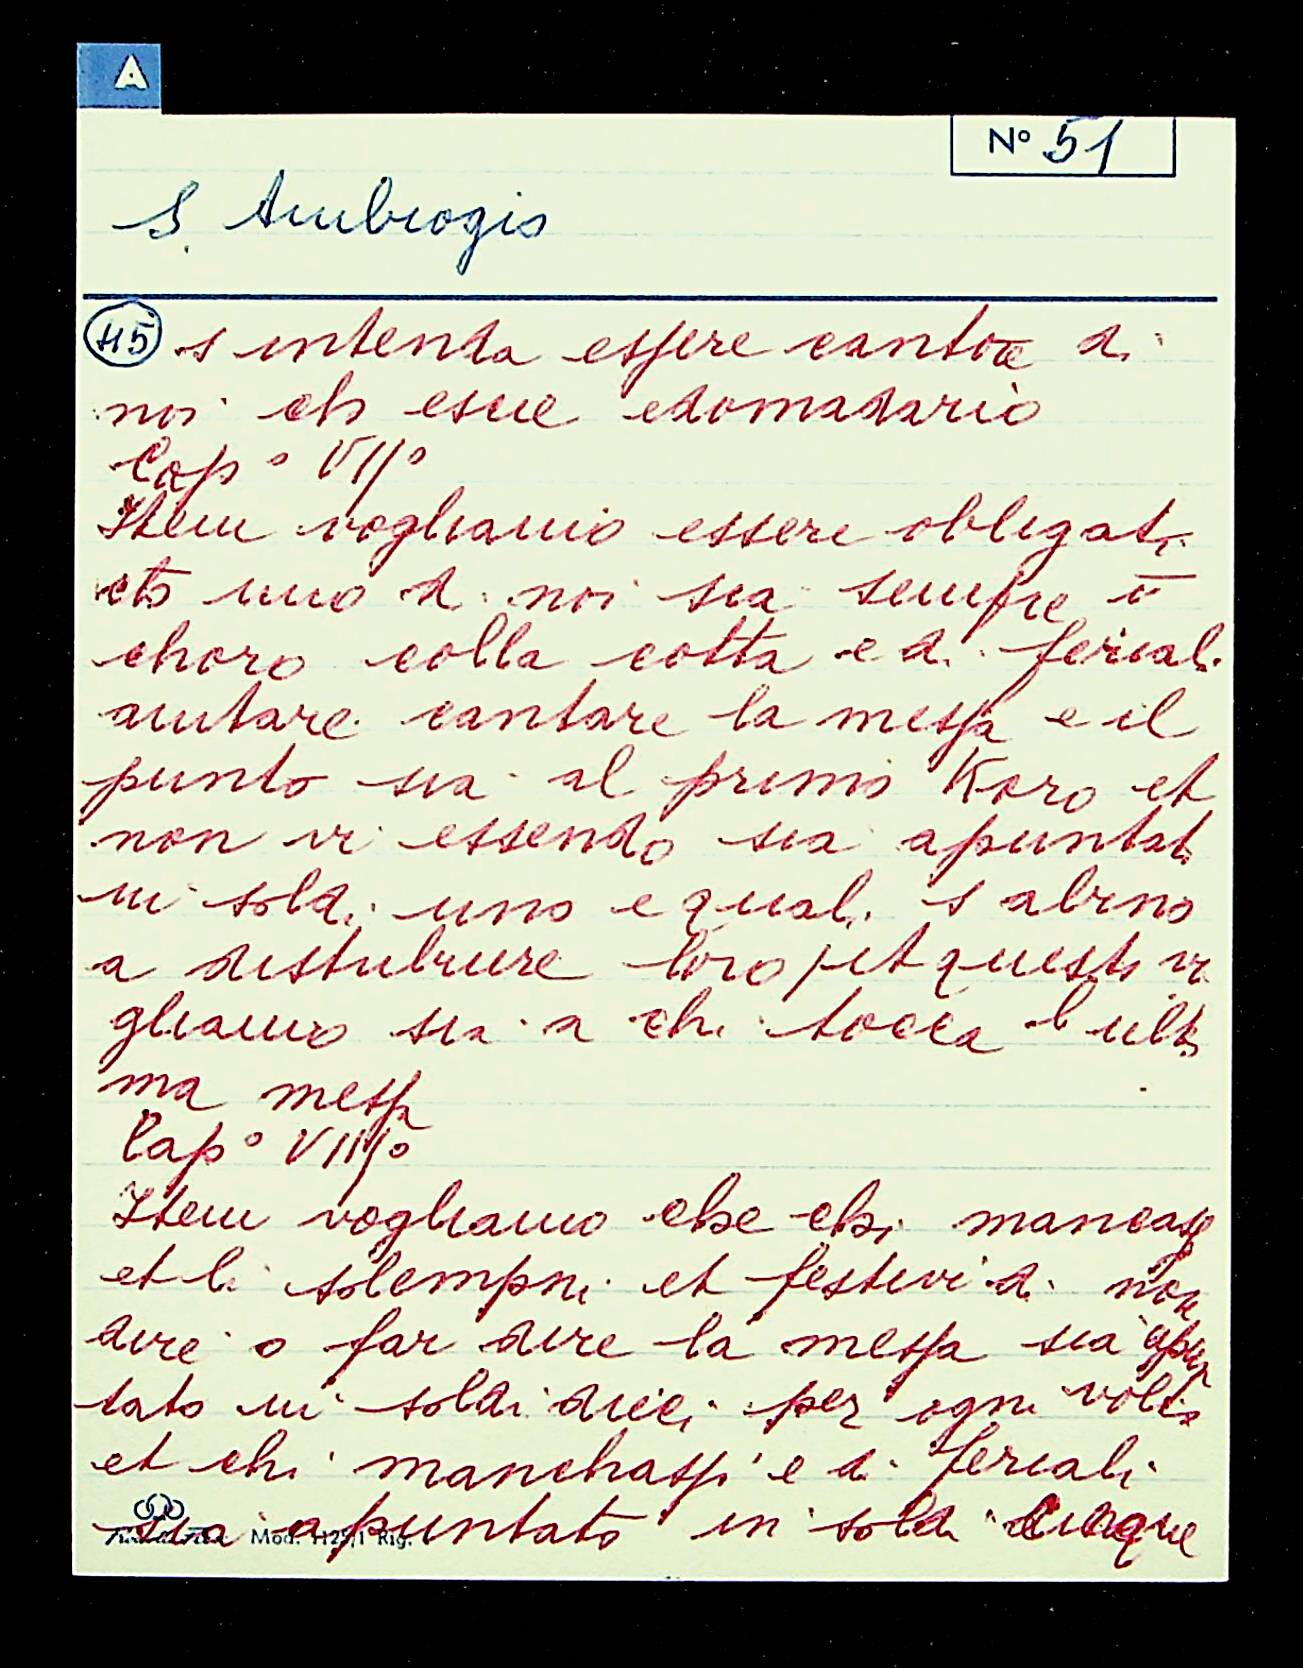 A
Nº 51
S. Ambrogio
45 s intenda essere cantore di
noi ch escie edomadario
Capº VIIº
Item vogliamo essere obligati
ch uno di noi sia sempre ī
choro colla cotta e di feriali
aiutare cantare la messa e il
punto sia al primo Koro et
non vi essendo sia apuntato
in soldi uno e quali s abino
a distribuire loro / et questo vo
gliamo sia a chi tocca l ulti
ma messa
Capº VIIIº
Item vogliamo che chi mancassi
et li solempni et festivi di non
dire o far dire la messa sia apun
tato in soldi dieci per ogni volta
et chi manchassi e di feriali
sia apuntato in soldi cinque
Mod. 1125/1 Rig.